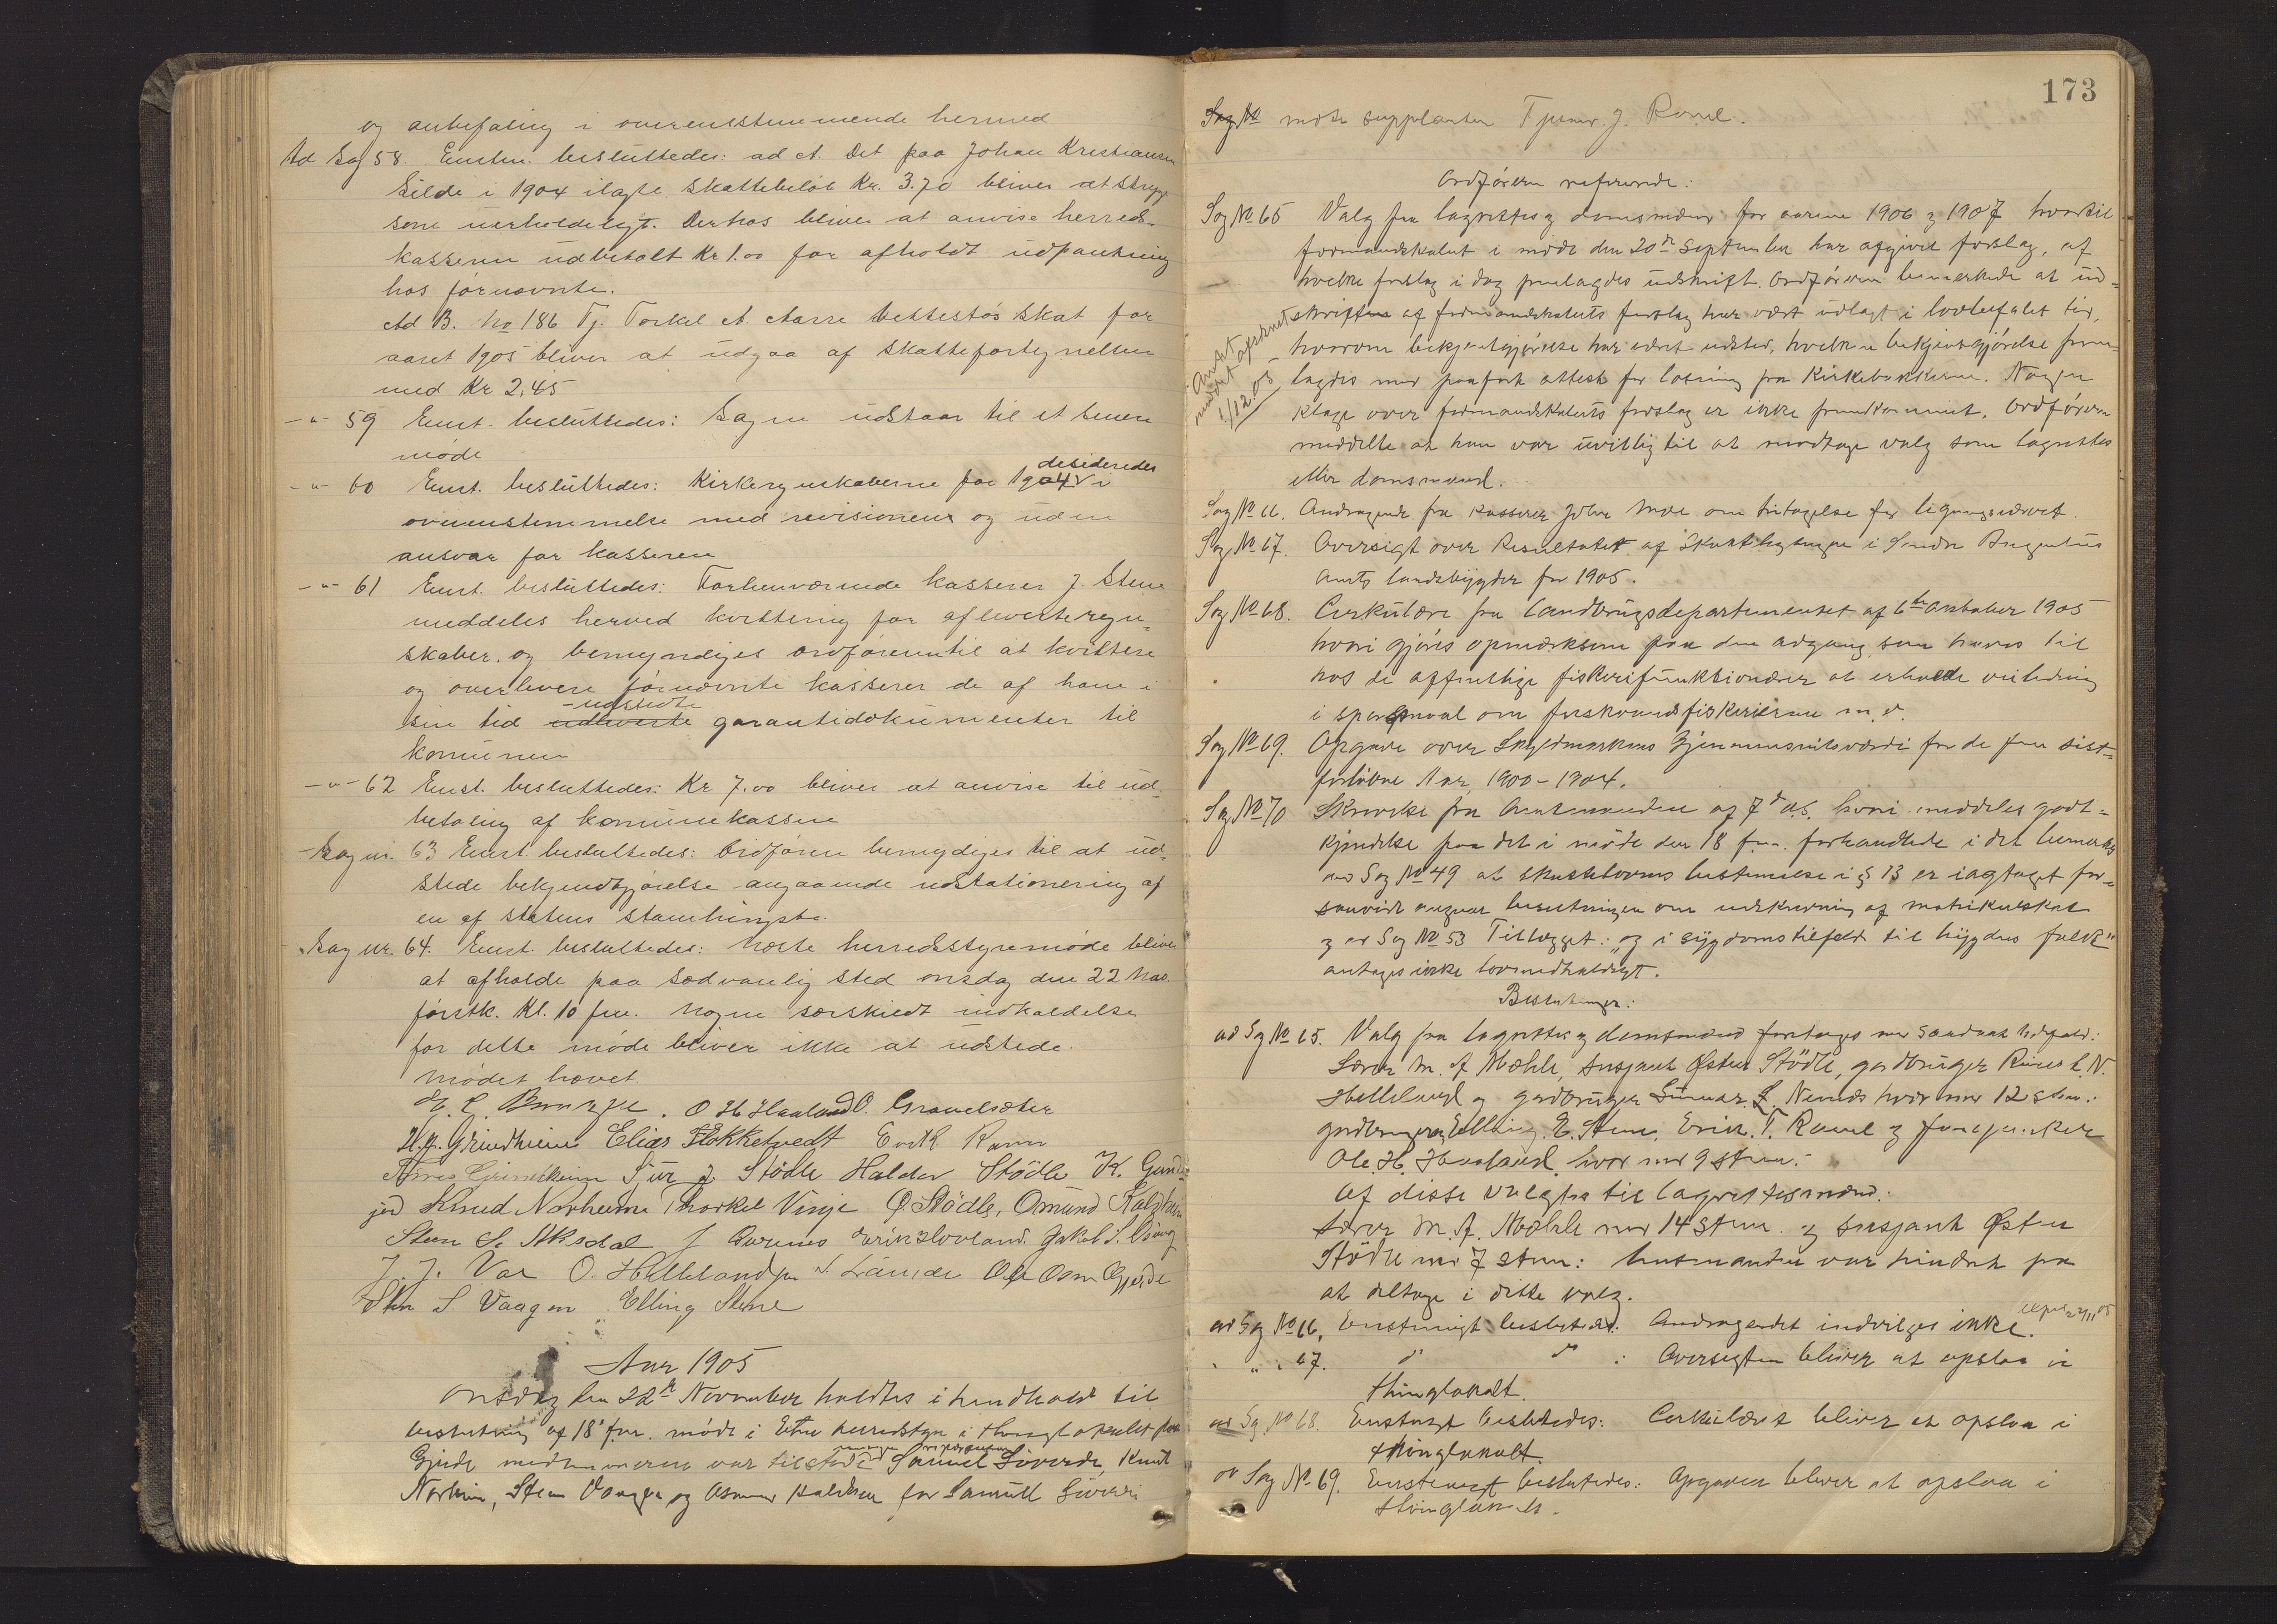 og anbefaling i overensstemmende hermed
Ad Sag 58. Enstm. besluttedes: ad A. Det paa Johan Kristiansen
Silde i 1904 ilagte Skattebeløb Kr. 3.70 bliver at stryge
som uerholdeligt. Derhos bliver at anvise herreds-
kasseren udbetalt Kr 1.00 for afholdt udpantning
hos førnævnte.
Ad B. No 186 Tj. Torkel A. Aarre Skat for
aaret 1905 bliver at udgaa af Skattefortegnelsen
med Kr 2,45
-"- 59 Enst. besluttedes: Sagen udstaar til et senere
møde
-"- 60 Enst. besluttedes: Kirkeregnskaberne for 1904 desideredes i
overenstemmelse med revisionens og uden
ansvar for kasseren
-"- 61 Enst. besluttedes: Forhenværende kasserer J. Stene
meddeles herved kvittering for afleverte regn-
skaber. og bemyndiges ordføreren til at kvittere
og overlevere førnævnte kasserer de af ham i
-udstedte
sin tid udleverte garantidokumenter til
komunen
-"- 62 Enst. besluttedes: Kr 7.00 bliver at anvise til ud-
betaling af komunekassen
Sag nr. 63 Enst. besluttedes: Ordføren bemydiges til at ud-
stede bekjendtgjørelse angaaende udstationering af
en af statens stamhingste.
Sag nr. 64. Enst. besluttedes: Næste herredsstyremøde bliver
at afholde paa sædvanlig sted onsdag den 22 Nov.
førstk. Kl. 10 fm. Nogen særskildt indkaldelse
for dette møde bliver ikke at udstede.
Mødet hævet
O H Haaland O. Gravelsæter
H. J. Grindheim Elias Flokketvedt Erik Ravn
Grindheim Sjur J. Stødle Haldor Stødle K. Gund-
jed Knud Norheim Thorkel Vinje Ø Stødle, Omund Kalstein
Sten S. Aksdal J Erik Hovland. Jakob S.
J. J. Vae O. Hellelandjr Ole Osm Gjerde
Sten S Vaagen Elling Stene
Aar 1905
Onsdag den 22de November holdtes i henhold til
beslutning af 18de f.m. møde i Etne herredstyre i thinglokalet paa
Gjerde medlemmerne var tilstede Samuel Sørerde, Knut
Norheim, Sten Vaagen og Osmun for Samuel
173
Sag No møtte suplanten Tj. J. Ravel.
Ordføreren refererede:
Sag No 65 Valg paa lagrettes og domsmænd for aarene 1906 og 1907 hvortil
formandskabet i møde den 20de September har afgivet forslag, af
hvilke forslag i dag fremlagdes udskrift. Ordføreren bemerkede at ud-
skriften af formandskabets forslag har vært udlagt i lovbefalet tid,
hvorom bekjentgjørelse har været udsted, hvilken bekjentgjørelse frem-
lagdes med paaført attest for læsning fra Kirkebakkerne. Nogen
klage over formandskabets forslag er ikke fremkommet. Ordføreren
meddelte at han var uvillig til at modtage valg som lagrettes
eller domsmand.
1/12 05
Sag No 66. Andragende fra kasserer John Moe om fritagelse for ligningshvervet.
Sag No 67. Oversigt over Resultatet af Skatligningen i Søndre Bergenhus
Amts landsbygder for 1905.
Sag No 68. Cirkulære fra Landbrugsdepartementet af 6te Oktober 1905
hvori gjøres opmærksom paa den adgang som haves til
hos de offentlige fiskerifunktionærer at erholde veiledning
i spørgsmaal om ferskvandsfiskerierne m.v.
Sag No 69. Opgave over Skyldmarkens Gjennemsnitsværdi for de fem sist-
forløbne Aar, 1900-1904.
Sag No 70 Skrivelse fra Amtmanden af 7de d.s. hvori meddeles godt-
kjendelse paa det i møde den 18 f.m. forhandlede i det bemerkes
ved Sag No 49 at skattelovens bestemmelse i § 13 er iagttaget for-
saavidt angaar beslutningen om udskrivning af matrikulskat
og ved Sag No 53 Tillægget: "og i sygdomstilfælde til bygdens folk"
antages ikke lovmedholdigt.
Beslutninger:
ad Sag No 65. Valg paa lagrettes og domsmænd foretages med saadant udfald:
Lærer M. A. Mæhle, Sersjant Østen Stødle, gardbruger N.
Helleland og gardbruger Gunnar L. Nernes hver med 12 stm.
gardbrugerne Elling E. Stene, Erik T. Ravel og
Ole H. Haaland hver med 9 stm.
Af disse valgtes til lagrettesmænd:
Lærer M. A. Mæhle med 14 stm. og sersjant Østen
Stødle med 7 stm: var hindret fra
at deltage i dette valg.
ad Sag No 66, Enstemmigt besluttedes: Andragendet indvilges ikke.
" " 67. do do : Oversigten bliver at opslaa i
thinglokalet.
ad Sag No 68. Enstemmigt besluttedes: Cirkulæret bliver at opslaa i
thinglokalet.
ad Sag No 69. Enstemmigt besluttedes: Opgaven bliver at opslaa i
thinglokalet.